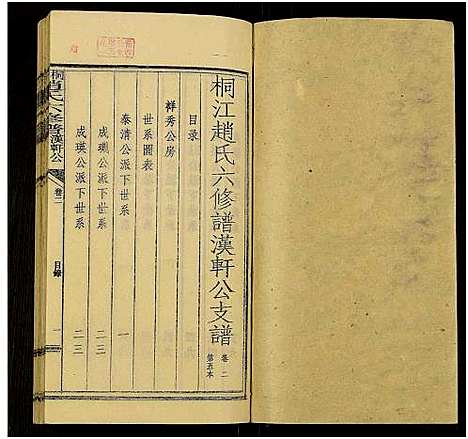 桐江趙氏六修譜漢軒公支譜 卷二 第五本
目录
群秀公房
世系圖表
泰清公派下世系 一
成瓚公派下世系 二三
成瑛公派下世系 二三
桐江趙氏六修譜漢軒公 卷二 目錄 一